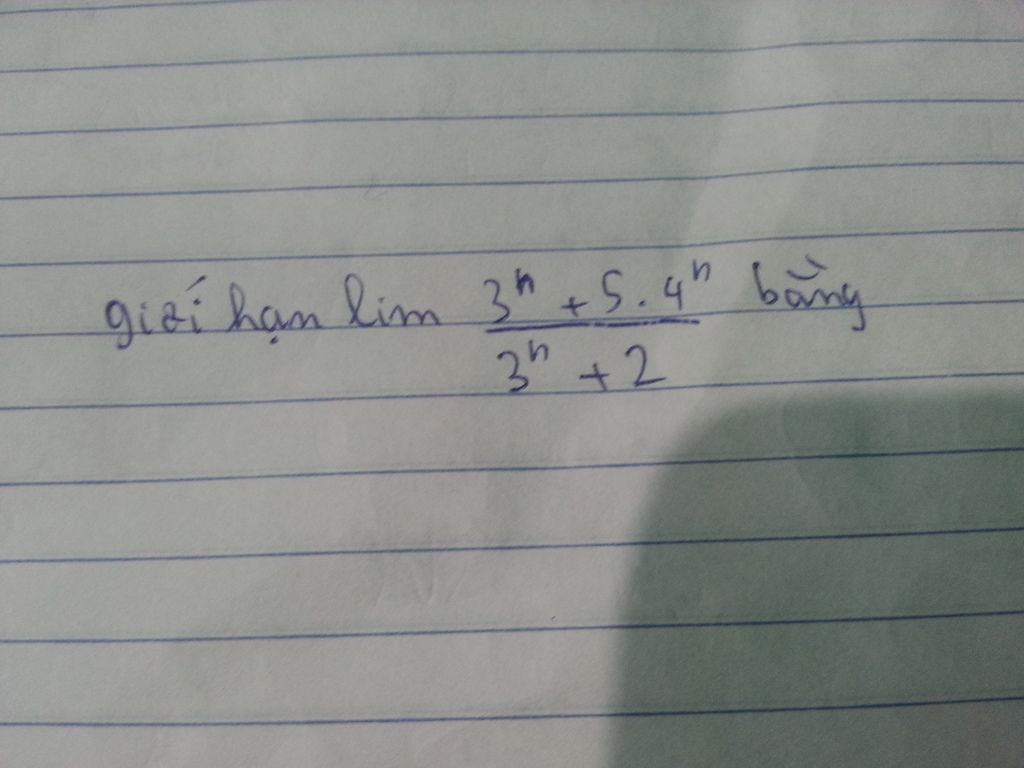 giới hạn lim \frac{3^n + 5 \cdot 4^n}{3^n + 2} bằng